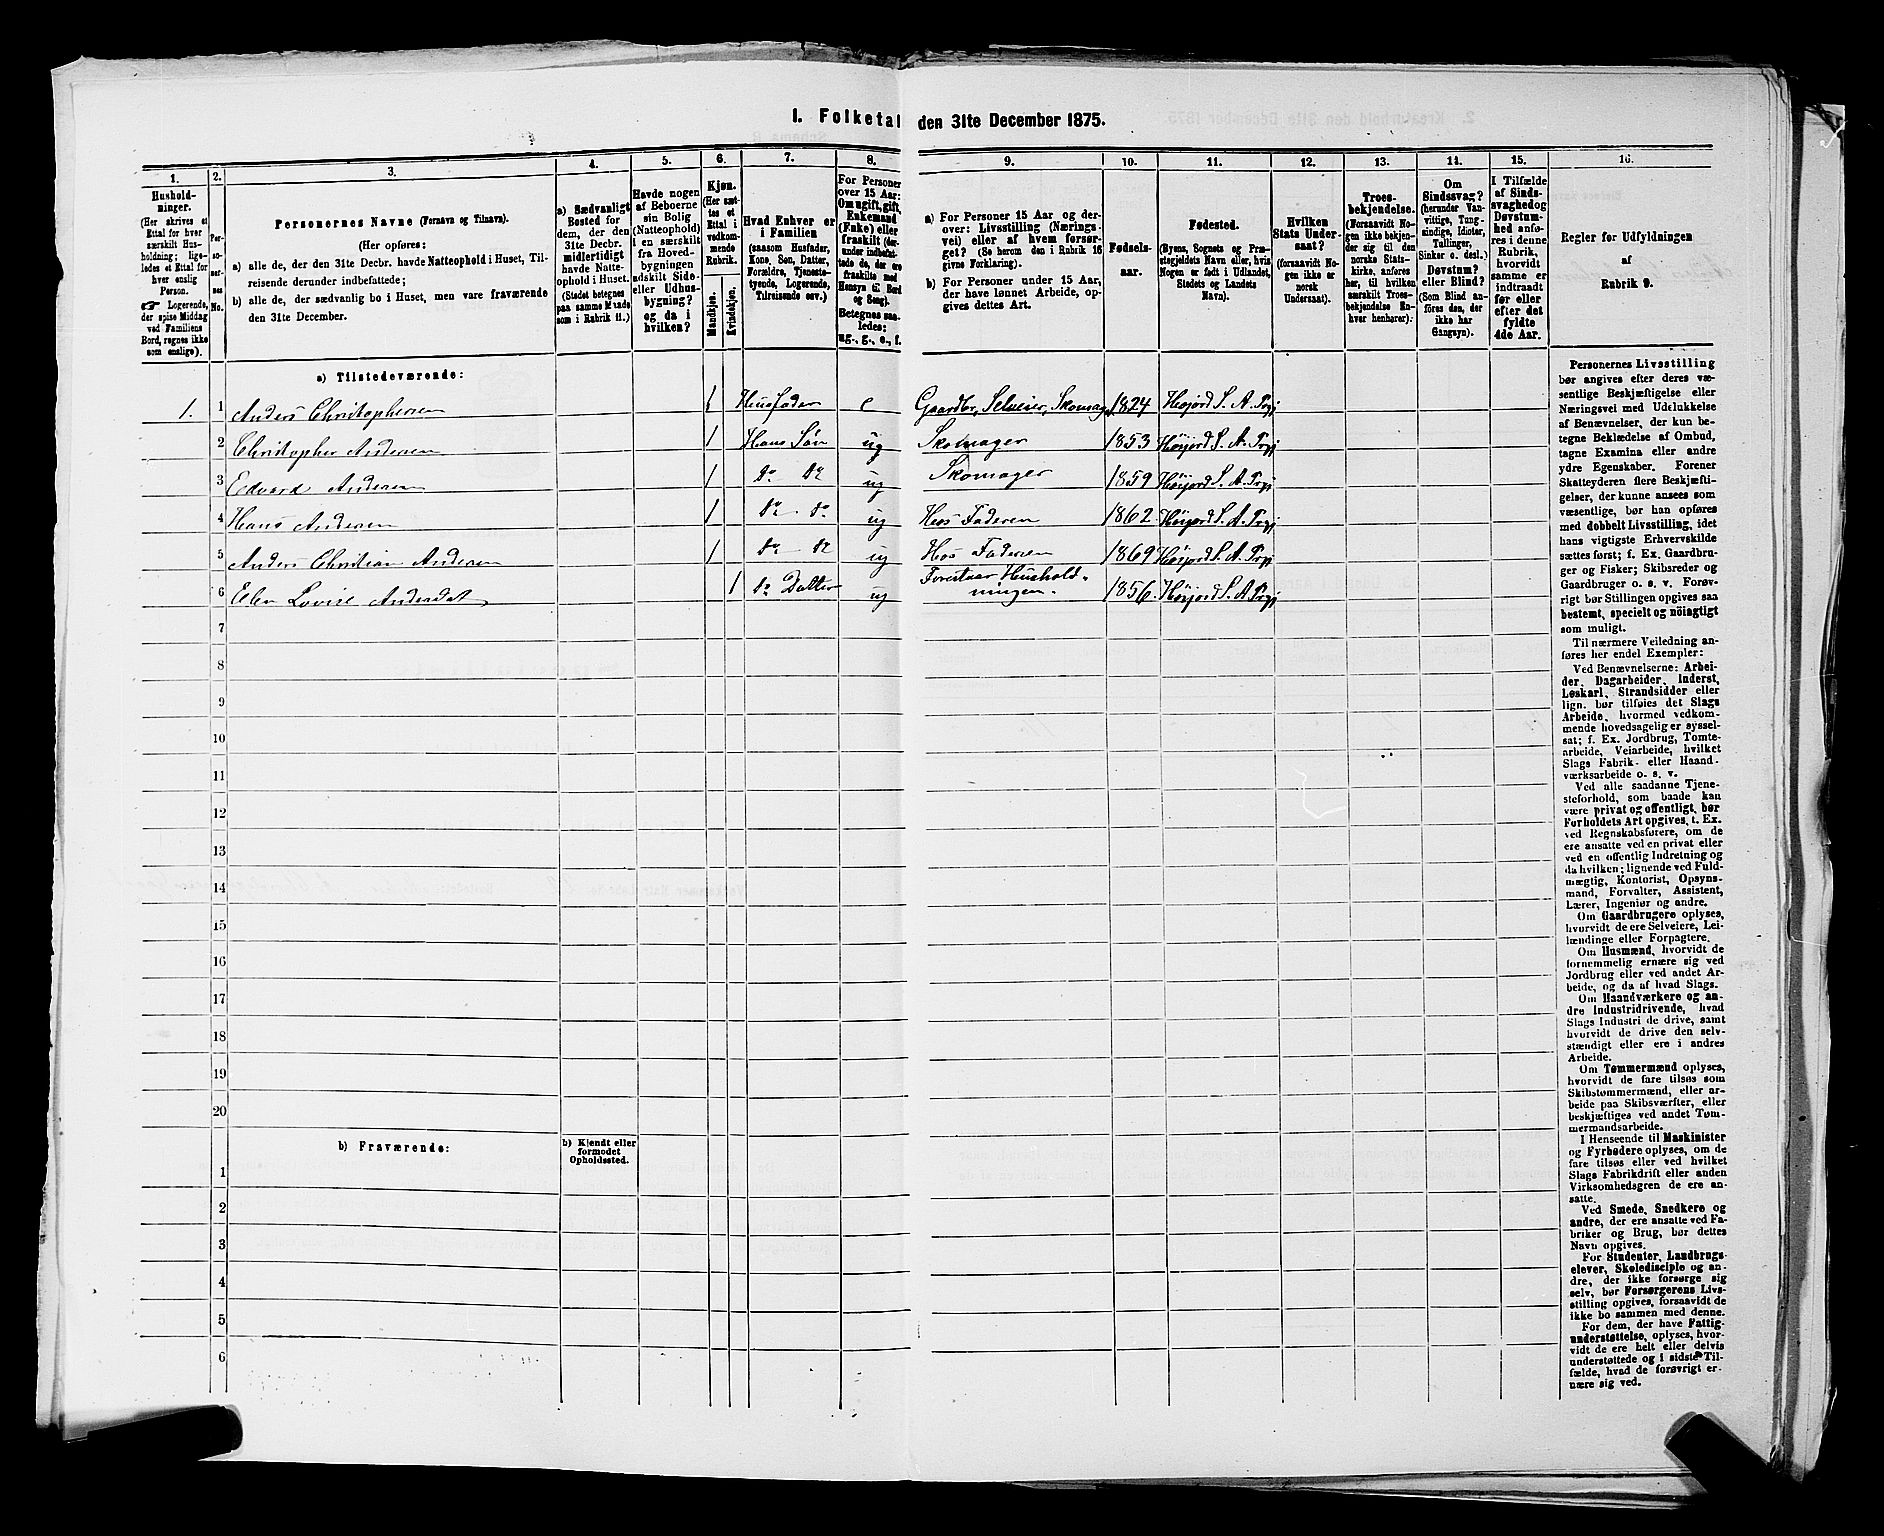 1. Folketal den 31te December 1875.
1.
Hushold-
ninger.
(Her skrives et
Ettal for hver
særskilt Hus-
holdning; lige-
ledes et Ettal for
hver enslig
Person.
☞ Logerende,
der spise Middag
ved Familiens
Bord, regnes ikke
som enslige).
2.
Per-
soner-
nes
No.
3.
Personernes Navne (Fornavn og Tilnavn).
(Her opføres:
a) alle de, der den 31te Decbr. havde Natteophold i Huset, Til-
reisende derunder indbefattede;
b) alle de, der sædvanlig bo i Huset, men vare fraværende
den 31te December.
4.
a) Sædvanligt
Bosted for
dem, der den
31te Decbr.
midlertidigt
havde Natte-
ophold i Huset.
(Stedet betegnes
paa samme Maade
som i Rubrik 11.)
5.
Havde nogen
af Beboerne
sin Bolig
(Natteophold)
i en særskilt
fra Hoved-
bygningen
adskilt Side-
eller Udhus-
bygning?
og da i
hvilken?
6.
Kjøn.
(Her sæt-
tes et
Ettal i
vedkom-
mende
Rubrik.
Mandkjøn.
Kvindekjøn.
7.
Hvad Enhver er
i Familien
(saasom Husfader,
Kone, Søn, Datter,
Forældre, Tjeneste-
tyende, Logerende,
Tilreisende osv.)
8.
For Personer
over 15 Aar:
Om ugift, gift,
Enkemand
(Enke) eller
fraskilt (der-
under indbefat-
tede de, der ere
fraskilte med
Hensyn til Bord
og Seng).
Betegnes saa-
ledes:
ug., g., e., f.
9.
a) For Personer 15 Aar og der-
over: Livsstilling (Nærings-
vei) eller af hvem forsør-
get? (Se herom den i Rubrik 16
givne Forklaring).
b) For Personer under 15 Aar,
der have lønnet Arbeide, op-
gives dettes Art.
10.
Fødsels-
aar.
11.
Fødested.
(Byens, Sognets og Præ-
stegjeldets Navn eller, hvis
Nogen er født i Udlandet,
Stedets og Landets
Navn).
12.
Hvilken
Stats Under-
saat?
(forsaavidt No-
gen ikke er
norsk
Undersaat).
13.
Troes-
bekjendelse.
(Forsaavidt No-
gen ikke bekjen-
der sig til den
norske Stats-
kirke, anføres
her, til hvilken
særskilt Troes-
bekjendelse En-
hver henhører).
14.
Om
Sindssvag?
(herunder Van-
vittige, Tung-
sindige, Idioter,
Tullinger,
Sinker o. desl.)
Døvstum?
eller Blind?
(Som Blind an-
føres den, der
ikke har
Gangsyn).
15.
I Tilfælde
af Sinds-
svaghed og
Døvstum-
hed anfø-
res i denne
Rubrik,
hvorvidt
samme er
indtraadt
før eller
efter det
fyldte
4de Aar.
16.
Regler for Udfyldningen
af
Rubrik 9.
a) Tilstedeværende:
1. 1 Anders Christophersen 1 Husfader e Gaardbr, Selveier, Skomager 1824 Høijord S. A. Prgj
2 Christopher Andersen 1 Hans Søn ug Skomager 1853 Høijord S. A. Prgj
3 Edvard Andersen 1 do do ug Skomager 1859 Høijord S. A. Prgj
4 Hans Andersen 1 do do ug Hos Faderen 1862 Høijord S. A. Prgj
5 Anders Christian Andersen 1 do do ug Hos Faderen 1869 Høijord S. A. Prgj
6 Elen Lovise Andersdat 1 do Datter ug Forestaar Hushold-
ningen. 1856 Høijord S. A. Prgj
7
8
9
10
11
12
13
14
15
16
17
18
19
20
b) Fraværende:
b) Kjendt eller
formodet
Opholdssted.
1
2
3
4
5
6
Personernes Livsstilling
bør angives efter deres væ-
sentlige Beskjæftigelse eller
Næringsvei med Udelukkelse
af Benævnelser, der kun be-
tegne Beklædelse af Ombud,
tagne Examina eller andre
ydre Egenskaber. Forener
Skatteyderen flere Beskjæfti-
gelser, der kunne ansees som
væsentlige, bør han opføres
med dobbelt Livsstilling, idet
hans vigtigste Erhvervskilde
sættes først; f. Ex. Gaardbru-
ger og Fisker; Skibsreder og
Gaardbruger o. s. v. Forøv-
rigt bør Stillingen opgives saa
bestemt, specielt og nöiagtigt
som muligt.
Til nærmere Veiledning an-
føres her endel Exempler:
Ved Benævnelserne: Arbei-
der, Dagarbeider, Inderst,
Løskarl, Strandsidder eller
lign. bør tilføies det Slags
Arbeide, hvormed vedkom-
mende hovedsagelig er syssel-
sat; f. Ex. Jordbrug, Tomte-
arbeide, Veiarbeide, hvilket
Slags Fabrik- eller Haand-
værksarbeide o. s. v.
Ved alle saadanne Tjene-
steforhold, som baade kan
være privat og offentligt, bør
Forholdets Art opgives, t. Ex.
ved Regnskabsførere, om de
ere ansatte ved en privat eller
ved en offentlig Indretning og
da hvilken; lignende ved Fuld-
mægtig, Kontorist, Opsyns-
mand, Forvalter, Assistent,
Lærer, Ingeniør og andre.
Om Gaardbrugere oplyses,
hvorvidt de ere Selveiere, Lei-
lændinge eller Forpagtere.
Om Husmænd, hvorvidt de
fornemmelig ernære sig ved
Jordbrug eller ved andet Ar-
beide, og da af hvad Slags.
Om Haandværkere og an-
dre Industridrivende, hvad
Slags Industri de drive, samt
hvorvidt de drive den selv-
stændigt eller ere i andres
Arbeide.
Om Tømmermænd oplyses,
hvorvidt de fare tilsøs som
Skibstømmermænd, eller ar-
beide paa Skibsværfter, eller
beskjæftiges ved andet Tøm-
mermandsarbeide.
I Henseende til Maskinister
og Fyrbødere oplyses, om de
fare tilsøs eller ved hvilket
Slags Fabrikdrift eller anden
Virksomhedsgren de ere an-
satte.
Ved Smede, Snedkere og
andre, der ere ansatte ved Fa-
briker og Brug, bør dettes
Navn opgives.
For Studenter, Landbrugs-
elever, Skoledisciple og an-
dre, der ikke forsørge sig
selv, bør Forsørgerens Livs-
stilling opgives, forsaavidt de
ikke bo sammen med denne.
For dem, der have Fattig-
understøttelse, oplyses, hvor-
vidt de ere helt eller delvis
understøttede og i sidste Til-
fælde, hvad de forøvrigt er-
nære sig ved.